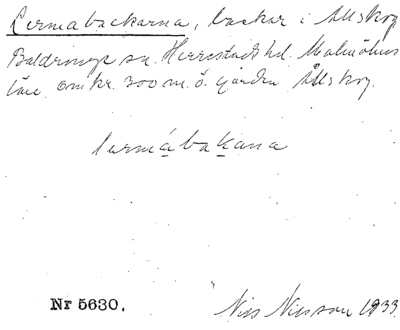 Lermabackarna, backar i Ållskog
Baldringe sn. Herrestads hd. Malmöhus
län. omkr. 300 m. ö. gården Ållskog.
larmábakana
Nr 5630.
Nils Nilsson 1933.